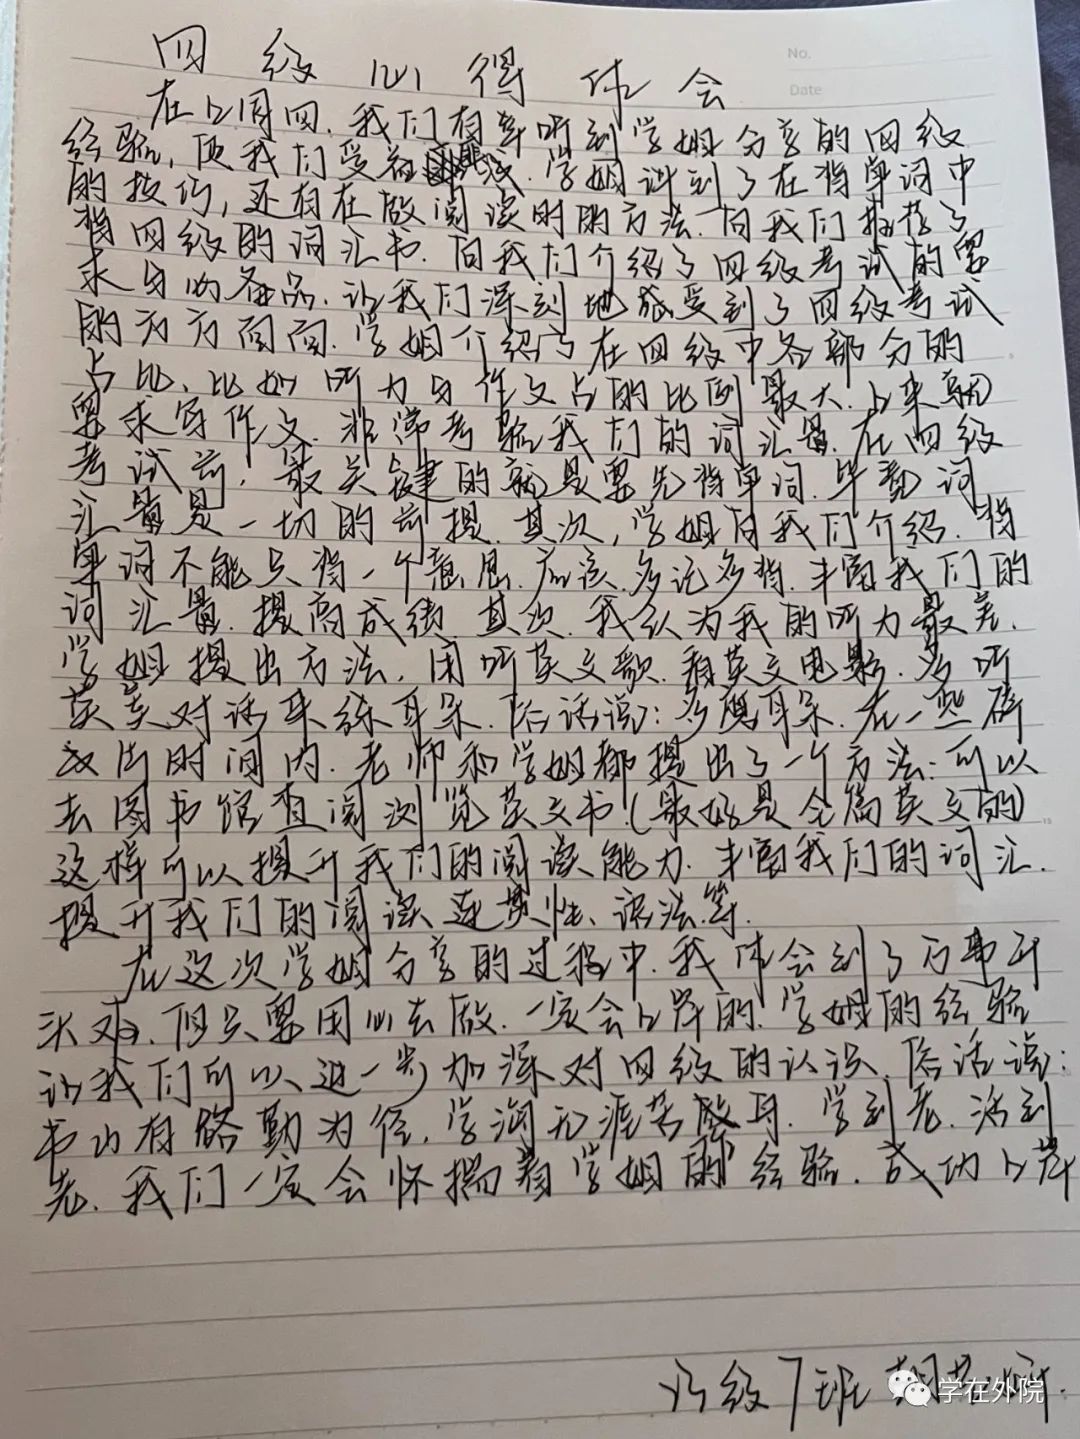 四级心得体会
No.
Date
在上周四,我们有幸听到学姐分享的四级
经验,使我们受益匪浅.学姐讲到了在背单词中
的技巧,还有在做阅读时的方法.向我们推荐了
背四级的词汇书.向我们介绍了四级考试的要
求与必备品.让我们深刻地感受到了四级考试
的方方面面.学姐介绍了在四级中各部分的
占比、比如听力与作文占的比例最大.上来就
要求写作文.非常考验我们的词汇量.在四级
考试前,最关键的就是要先背单词.毕竟词
汇量是一切的前提.其次,学姐向我们介绍.背
单词不能只背一个意思.应该多记多背.丰富我们的
词汇量.提高成绩.其次.我认为我的听力最差.
学姐提出方法.用听英文歌.看英文电影.多听
英美对话来练耳朵.俗话说:多磨耳朵.在一些碎
片的时间内.老师和学姐都提出了一个方法:可以
去图书馆查阅浏览英文书.(最好是全篇英文的)
这样可以提升我们的阅读能力.丰富我们的词汇.
提升我们的阅读连贯性、语法等.
在这次学姐分享的过程中.我体会到了万事开
头难.但只要用心去做.一定会上岸的.学姐的经验
让我们可以进一步加深对四级的认识.俗话说:
书山有路勤为径.学海无涯苦作舟.学到老.活到
老.我们一定会怀揣着学姐的经验.成功上岸
级7班
学在外院